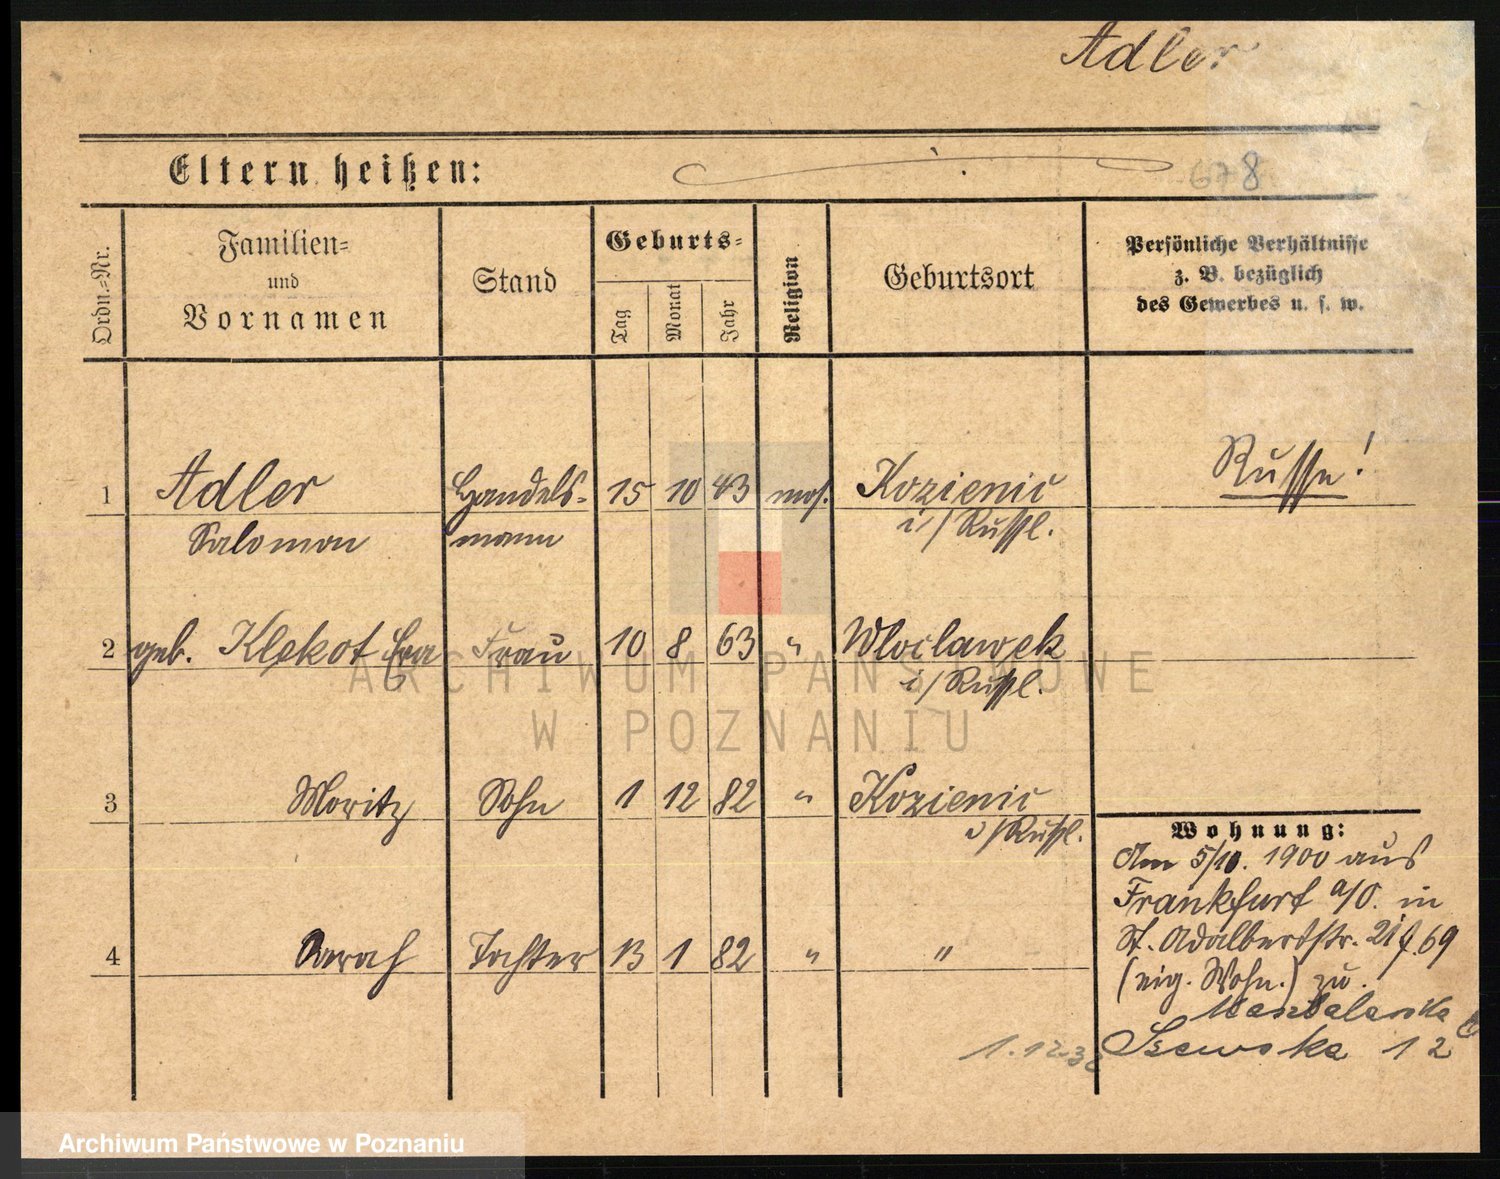 Adler
Eltern heißen:
678
Ordn.-Nr.
Familien-
und
Vornamen
Stand
Geburts-
Tag
Monat
Jahr
Religion
Geburtsort
Persönliche Verhältnisse
z. B. bezüglich
des Gewerbes u. s. w.
1 Adler Handels- 15 10 43 mos. Kozienic Russe!
Salomon mann i/Russl.
2 geb. Klekot Eva Frau 10 8 63 " Wloclawek
i/Russl.
3 Moritz Sohn 1 12 82 " Kozienic
i/Russl.
Wohnung:
Am 5/10. 1900 aus
Frankfurt a/O. in
St. Adalbertstr. 21 f. 69
4 Sarah Tochter 13 1 82 " "
(eig. Wohn.) zu.
1.12.32 Szewska 12
ARCHIWUM PAŃSTWOWE
W POZNANIU
Archiwum Państwowe w Poznaniu